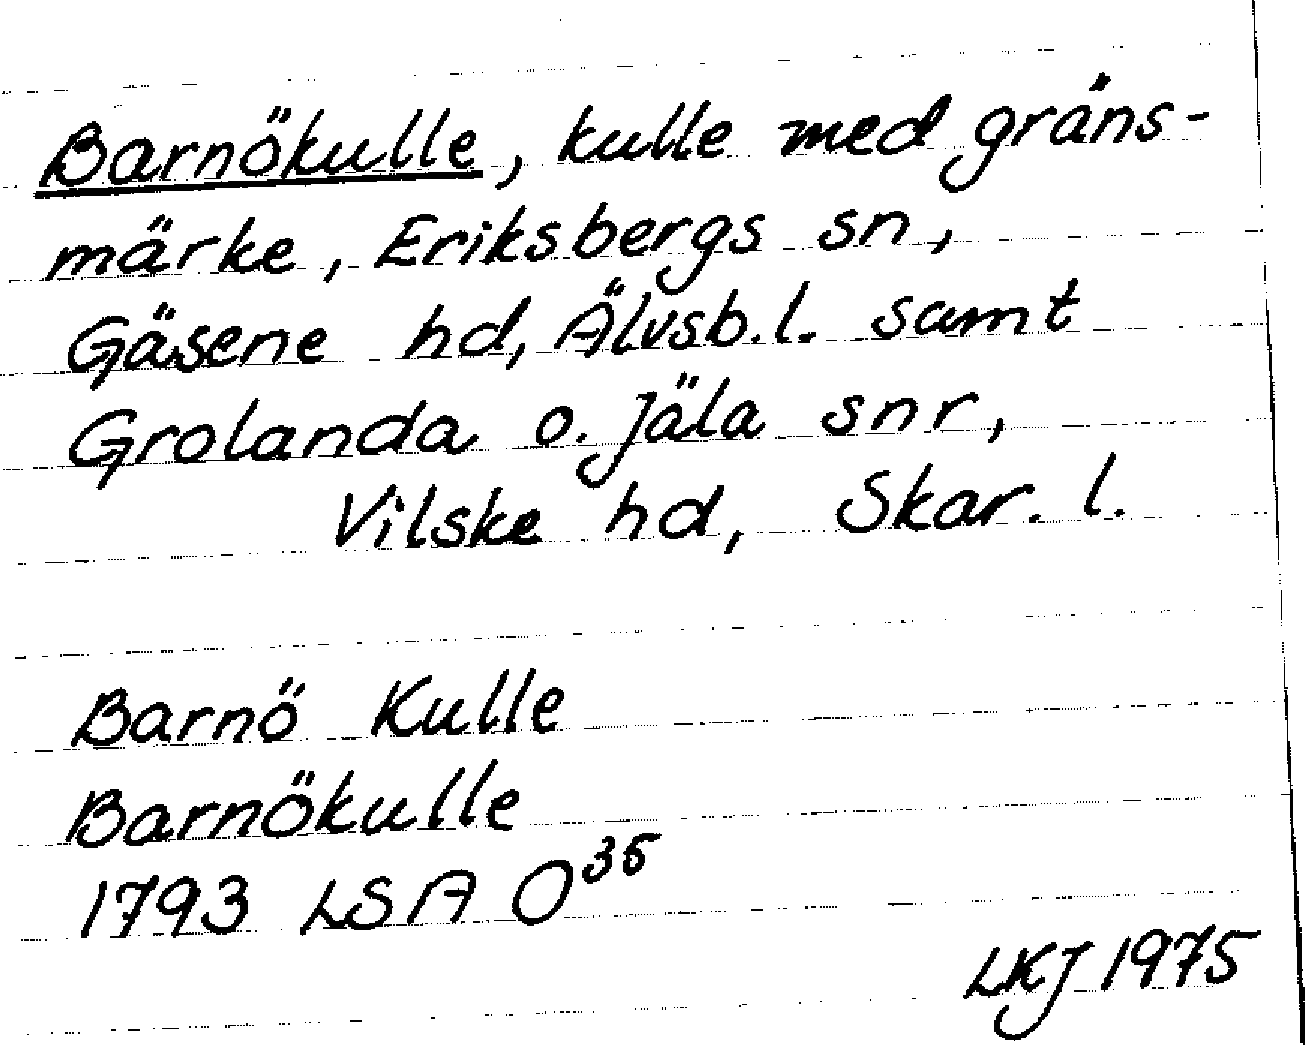 Barnökulle, kulle med gräns-
märke, Eriksbergs sn,
Gäsene hd, Älvsb. l. samt
Grolanda o. Jäla snr,
Vilske hd, Skar. l.
Barnö Kulle
Barnökulle
1793 LSA O³⁵
LKJ 1975